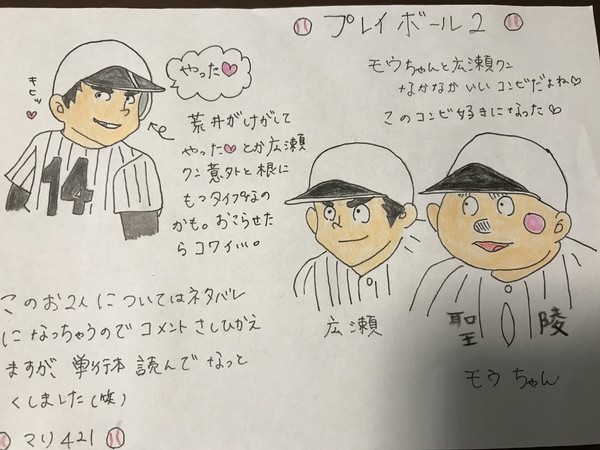 プレイボール2
モウちゃんと広瀬クン
なかなかいいコンビだよね♡
このコンビ好きになった♡
やった♡
キヒッ
♡
荒井がけがして
やった♡とか広瀬
クン意外と根に
もつタイプなの
かも。おこらせた
らコワイ…。
14
広瀬
聖陵
モウちゃん
このお2人についてはネタバレ
になっちゃうのでコメントさしひかえ
ますが、単行本読んでなっと
くしました(笑)
マリ421